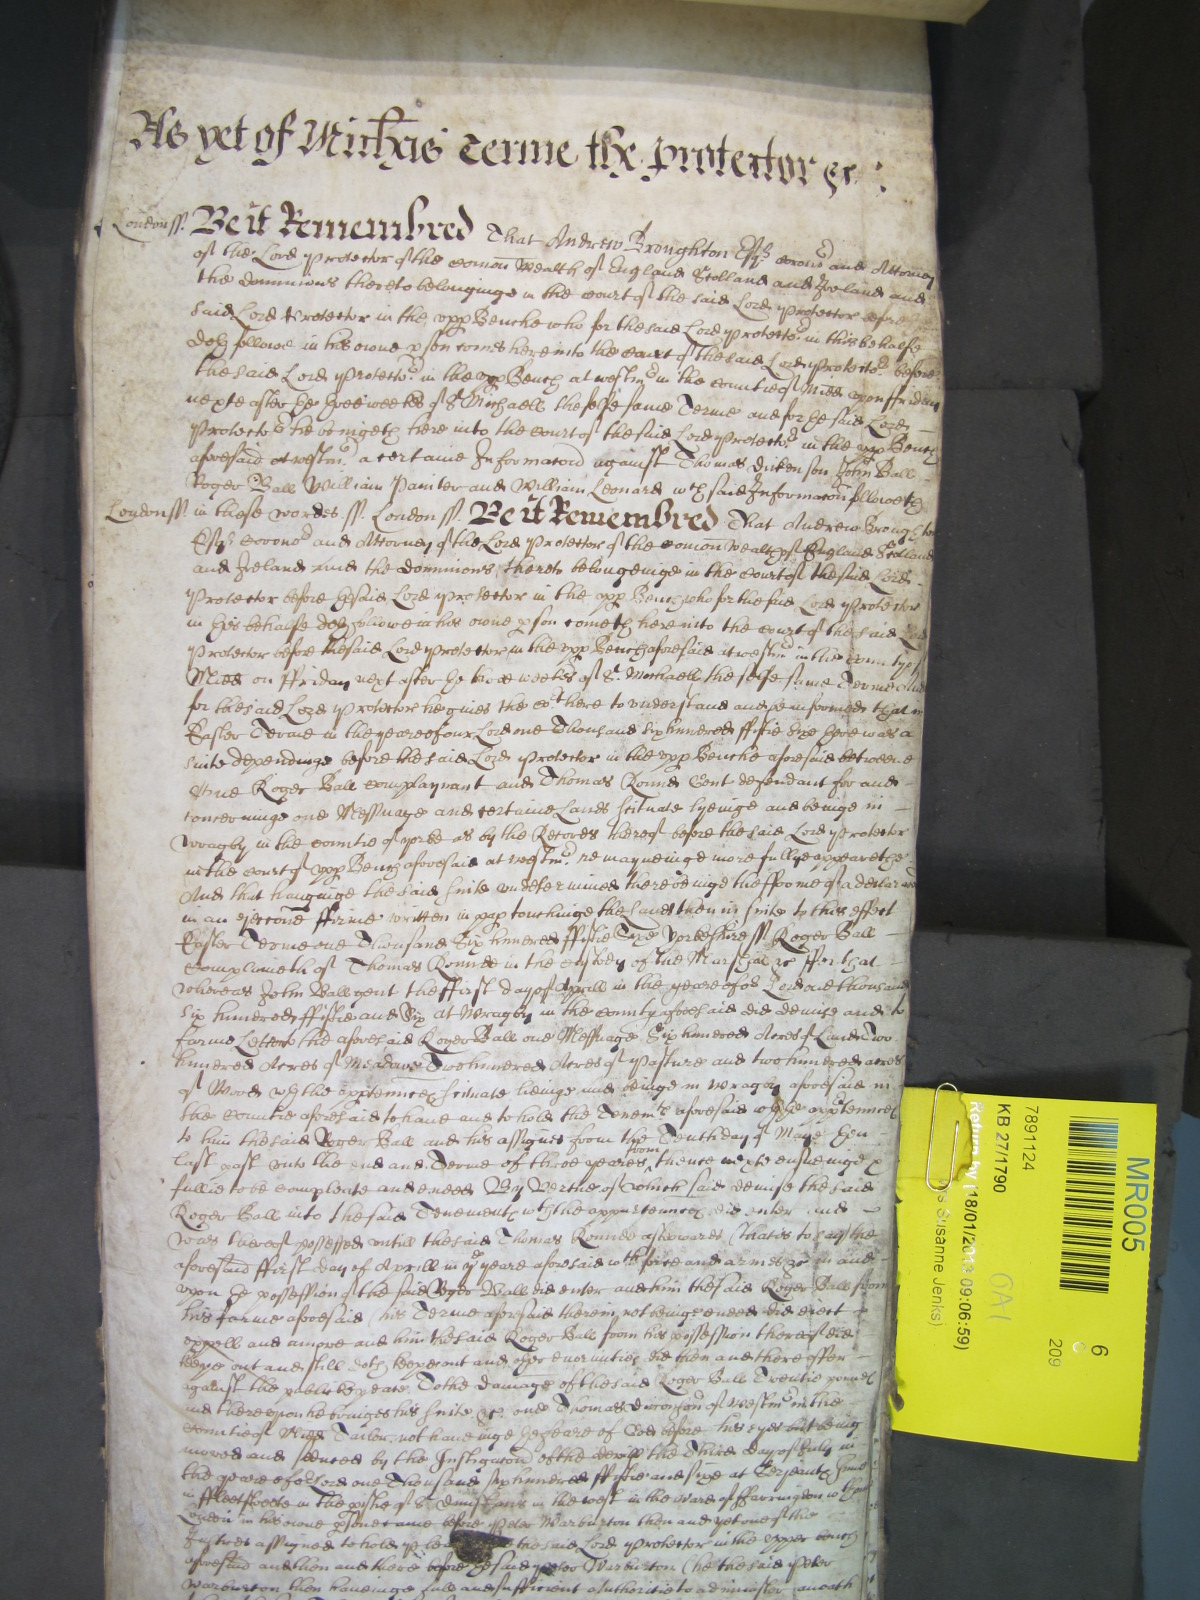 As yet of Mich'is Terme the Protector &c :
London ss. Be it Remembred That Andrew Broughton Esqr. corono. and Attorney
of the Lord Protector of the comon Wealth of England Scotland and Ireland and
the dominions thereto belonginge in the court of the said Lord Protector before
said Lord Protector in the upp Benche who for the said Lord Protector in this behalfe
doth followe in his owne pson comes here into the court of the said Lord Protector before
the said Lord Protector in the upp Bench at westmr. in the countie of Midd upon ffriday
nexte after the three weekes of St. Michaell the selfe same Terme and for the said Lord
Protector he bringeth here into the court of the said Lord Protector in the upp Bench
aforesaid at westmr. a certaine Informacon against Thomas Dickenson John Ball
Roger Ball William Painter and William Leonard wch said Informacon followeth
London ss. in these wordes ss. London ss. Be it Remembred That Andrew Broughton
Esqr. corono. and Attorney of the Lord Protector of the comon wealth of England Scotland
and Ireland and the dominions thereto belongeinge in the court of the said Lord
Protector before the said Lord Protector in the upp Bench who for the said Lord Protector
in this behalfe doth followe in his owne pson cometh here into the court of the said Lord
Protector before the said Lord Protector in the upp Bench aforesaid at westmr. in the county of
Midd on ffriday next after the three weekes of St. Michaell the selfe same Terme And
for the said Lord Protector he gives the Cot. here to understand and be informed that in
Easter Terme in the yeare of our Lord one Thousand six hundred ffiftie six there was a
suite dependinge before the said Lord Protector in the upp Benche aforesaid betweene
one Roger Ball complaynant and Thomas Ronnd Gent defendant for and
concerninge one Messuage and certaine Lands scituate lyeinge and beinge in
wragby in the countie of yorke as by the Records thereof before the said Lord Protector
in the court of upp Bench aforesaid at westmr. remayneinge more fully appeareth
And that hanginge the said suite undetermined there beinge the fforme of a declaracon
in an ejeccone ffirme written in pap touchinge the Lands then in suite to this effect
Easter Terme one Thousand Six hundred ffiftie Sixe yorkeshire ss Roger Ball
complaineth of Thomas Ronnd in the custody of the Marshal &c ffor that
whereas John Ball gent the ffirst day of Aprill in the yeare of or. Lord one thousand
six hundred ffiftie and Six at Wragby in the county aforesaid did demise and to
farme Letten the aforesaid Roger Ball one Messuage Six hundred Acres of Land Two
hundred Acres of Meadowe Two hundred Acres of pasture and two hundred acres
of Wood wth the apptennces scituate lieinge and beinge in wragby aforesaid in
the countie aforesaid to have and to hold the Tenemts. aforesaid wth the apptennces
to him the said Roger Ball and his assignes from the Tenth day of then
last past unto the end and Terme of three yeares from thence nexte ensueinge
fullie to be compleate and ended By Vertue of which said demise the said
Roger Ball into the said Tenements wth the appurtennces did enter and
was thereof possessed untill the said Thomas Ronnd afterwards (that is to say) the
aforesaid ffirst day of Aprill in the yeare aforesaid wth force and armes &c in and
upon the possession of the said Roger Ball did enter and him the said Roger Ball from
his farme aforesaid (his Terme aforesaid therein not beinge ended) did eject
expell and amove and him the said Roger Ball from his possession thereof did
keepe out and still doth keepe out and other enormities did then and there offer
against the publike peace To the damage of the said Roger Ball Twentie pounds
and thereupon he bringes his suite &c. one Thomas Dickenson of westmr. in the
countie of Midd Tailor not haveinge the feare of God before his eyes but being
moved and seduced by the Instigacon of the devill the Third day of July in
the yeare of or. Lord one Thousand six hundred ffiftie and sixe at Serjeants Inne
in ffleetstreete in the pishe of St. Dunstans in the west in the ward of ffarringdon without
London in his owne psone came before Peter Warburton then and yet one of the
Justices assigned to hold the said Lord Protector in the upper bench
aforesaid and then and there before the said Peter Warburton (he the said Peter
Warburton then haveinge full and sufficient authoritie to administer an oath
MR005
6
209
7891124
KB 27/1790
Return by (18/01/2013 09:06:59)
Susanne Jenks)